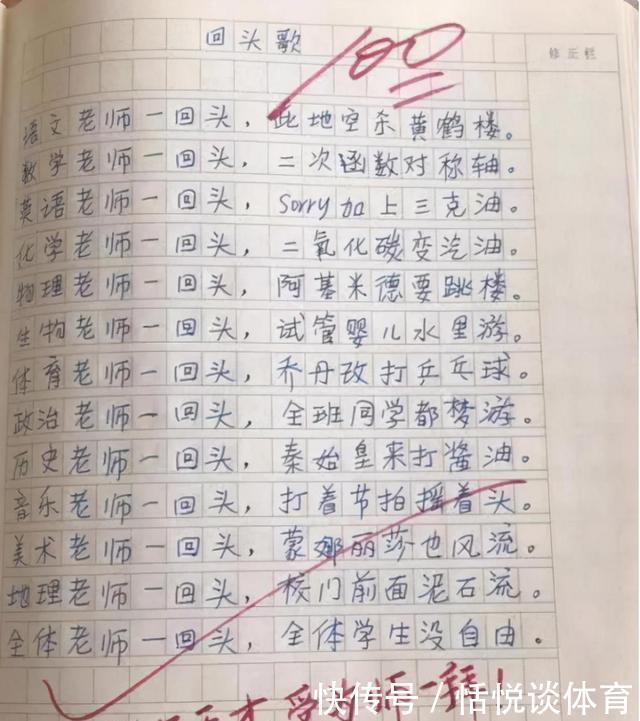 回头歌
100
修正栏
语文老师一回头，此地空余黄鹤楼。
数学老师一回头，二次函数对称轴。
英语老师一回头，sorry加上三克油。
化学老师一回头，二氧化碳变汽油。
物理老师一回头，阿基米德要跳楼。
生物老师一回头，试管婴儿水里游。
体育老师一回头，乔丹改打乒乓球。
政治老师一回头，全班同学都梦游。
历史老师一回头，秦始皇来打酱油。
音乐老师一回头，打着节拍摇着头。
美术老师一回头，蒙娜丽莎也风流。
地理老师一回头，校门前面泥石流。
全体老师一回头，全体学生没自由。
快传号／恬悦谈体育